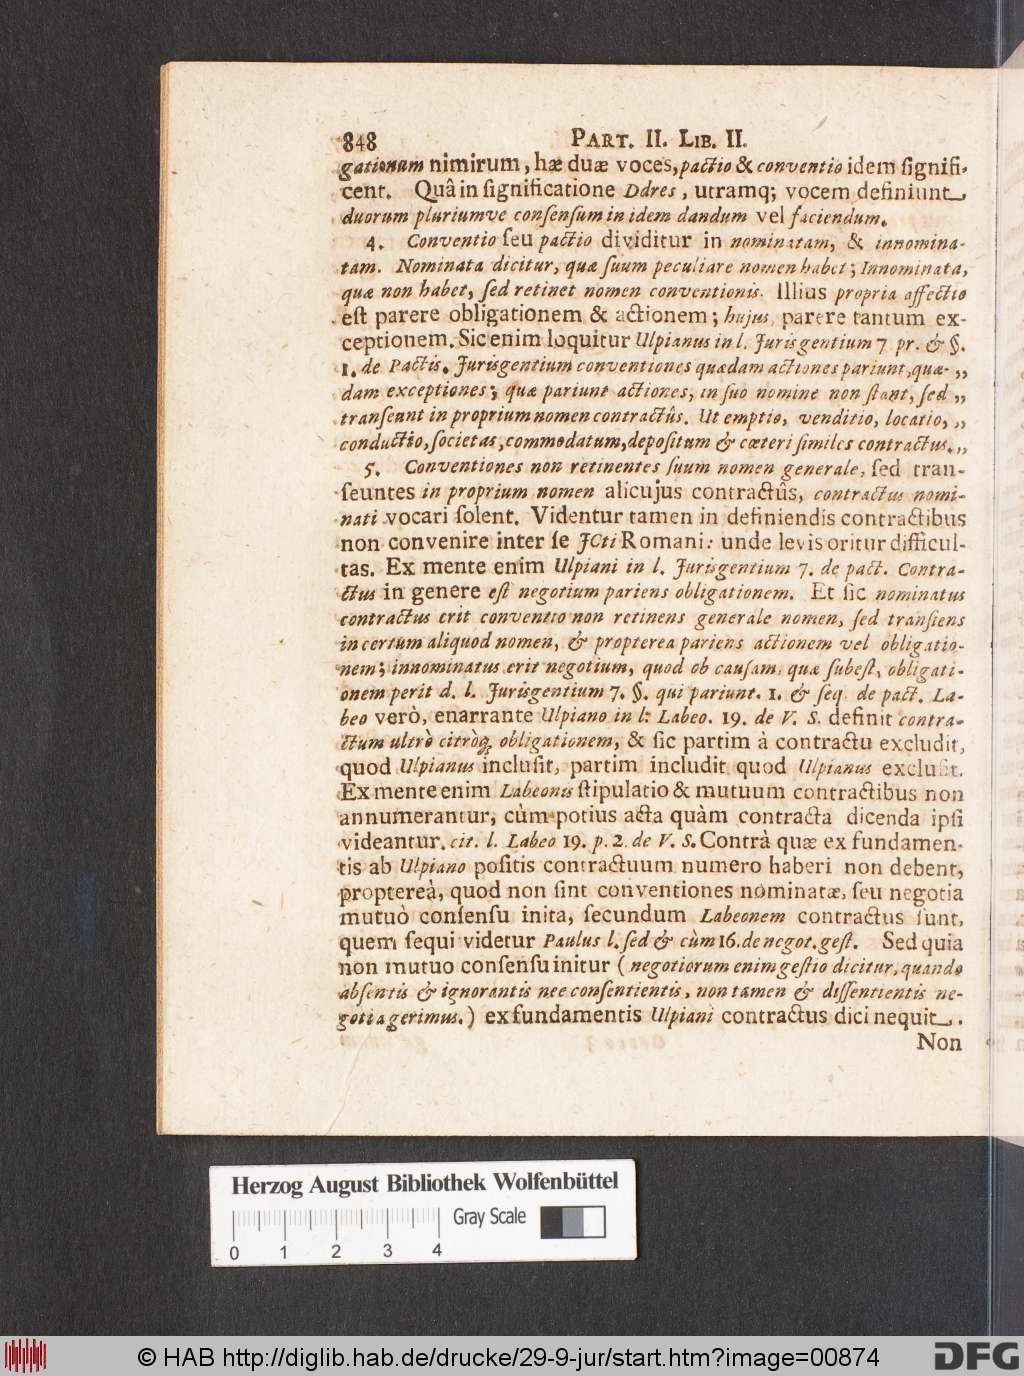 848 PART. II. LIB. II.
gationum nimirum, hæ duæ voces, pactio & conventio idem signifi-
cent. Quâ in significatione Ddres, utramq; vocem definiunt
duorum pluriumve consensum in idem dandum vel faciendum.
4. Conventio seu pactio dividitur in nominatam, & innomina-
tam. Nominata dicitur, quæ suum peculiare nomen habet; Innominata,
quæ non habet, sed retinet nomen conventionis. Illius propria affectio
est parere obligationem & actionem; hujus, parere tantum ex-
ceptionem. Sic enim loquitur Ulpianus in l. Jurisgentium 7 pr. & §.
1. de Pactis. Jurisgentium conventiones quædam actiones pariunt, quæ- „
dam exceptiones; quæ pariunt actiones, in suo nomine non stant, sed „
transeunt in proprium nomen contractûs. Ut emptio, venditio, locatio, „
conductio, societas, commodatum, depositum & cæteri similes contractus. „
5. Conventiones non retinentes suum nomen generale, sed tran-
seuntes in proprium nomen alicujus contractûs, contractus nomi-
nati vocari solent. Videntur tamen in definiendis contractibus
non convenire inter se JCti Romani: unde levis oritur difficul-
tas. Ex mente enim Ulpiani in l. Jurisgentium 7. de pact. Contra-
ctus in genere est negotium pariens obligationem. Et sic nominatus
contractus erit conventio non retinens generale nomen, sed transiens
in certum aliquod nomen, & propterea pariens actionem vel obligatio-
nem; innominatus erit negotium, quod ob causam, quæ subest, obligati-
onem perit d. l. Jurisgentium 7. §. qui pariunt. 1. & seq. de pact. La-
beo verò, enarrante Ulpiano in l: Labeo. 19. de V. S. definit contra-
ctum ultrò citròq; obligationem, & sic partim à contractu excludit,
quod Ulpianus inclusit, partim includit quod Ulpianus exclusit.
Ex mente enim Labeonis stipulatio & mutuum contractibus non
annumerantur, cùm potius acta quàm contracta dicenda ipsi
videantur. cit. l. Labeo 19. p. 2. de V. S. Contrà quæ ex fundamen-
tis ab Ulpiano positis contractuum numero haberi non debent,
propterea, quod non sint conventiones nominatæ, seu negotia
mutuò consensu inita, secundum Labeonem contractus sunt,
quem sequi videtur Paulus l. sed & cùm 16. de negot. gest. Sed quia
non mutuo consensu initur (negotiorum enim gestio dicitur, quando
absentis & ignorantis nec consentientis, non tamen & dissentientis ne-
gotia gerimus.) ex fundamentis Ulpiani contractus dici nequit.
Non
Herzog August Bibliothek Wolfenbüttel
Gray Scale
0 1 2 3 4
© HAB http://diglib.hab.de/drucke/29-9-jur/start.htm?image=00874
DFG